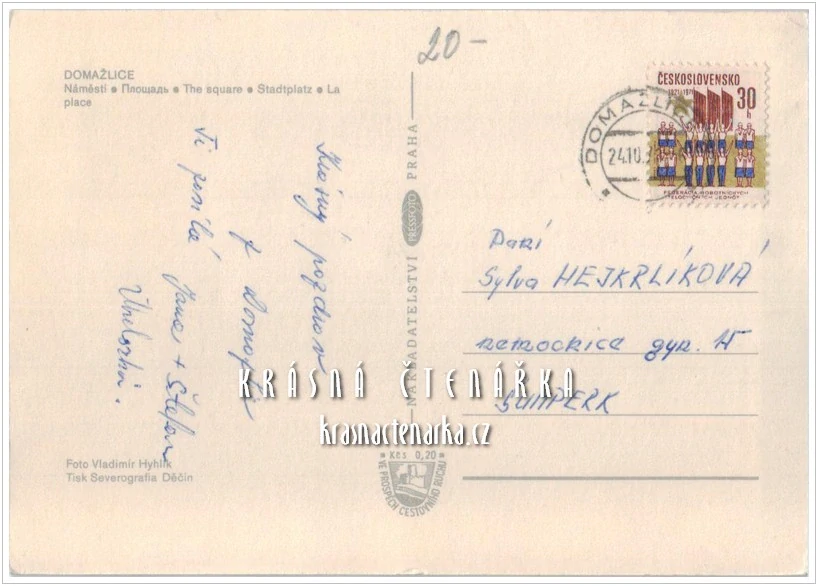 20-
DOMAŽLICE
Náměstí • Площадь • The square • Stadtplatz • La
place
ČESKOSLOVENSKO
1921-1971
30
h
FEDERÁCIA ROBOTNÍCKYCH
TELOCVIČNÝCH JEDNÔT
DOMAŽLICE
24.10.
Krásný pozdrav
z
Ti posílá Jana + Štefan
NAKLADATELSTVÍ PRESSFOTO PRAHA
Paní
Sylva HEJKRLÍKOVÁ
nemocnice gyn.
ŠUMPERK
KRÁSNÁ ČTENÁŘKA
krasnactenarka.cz
Foto Vladimír Hyhlík
Tisk Severografia Děčín
Kčs 0,20
VE PROSPĚCH CESTOVNÍHO RUCHU